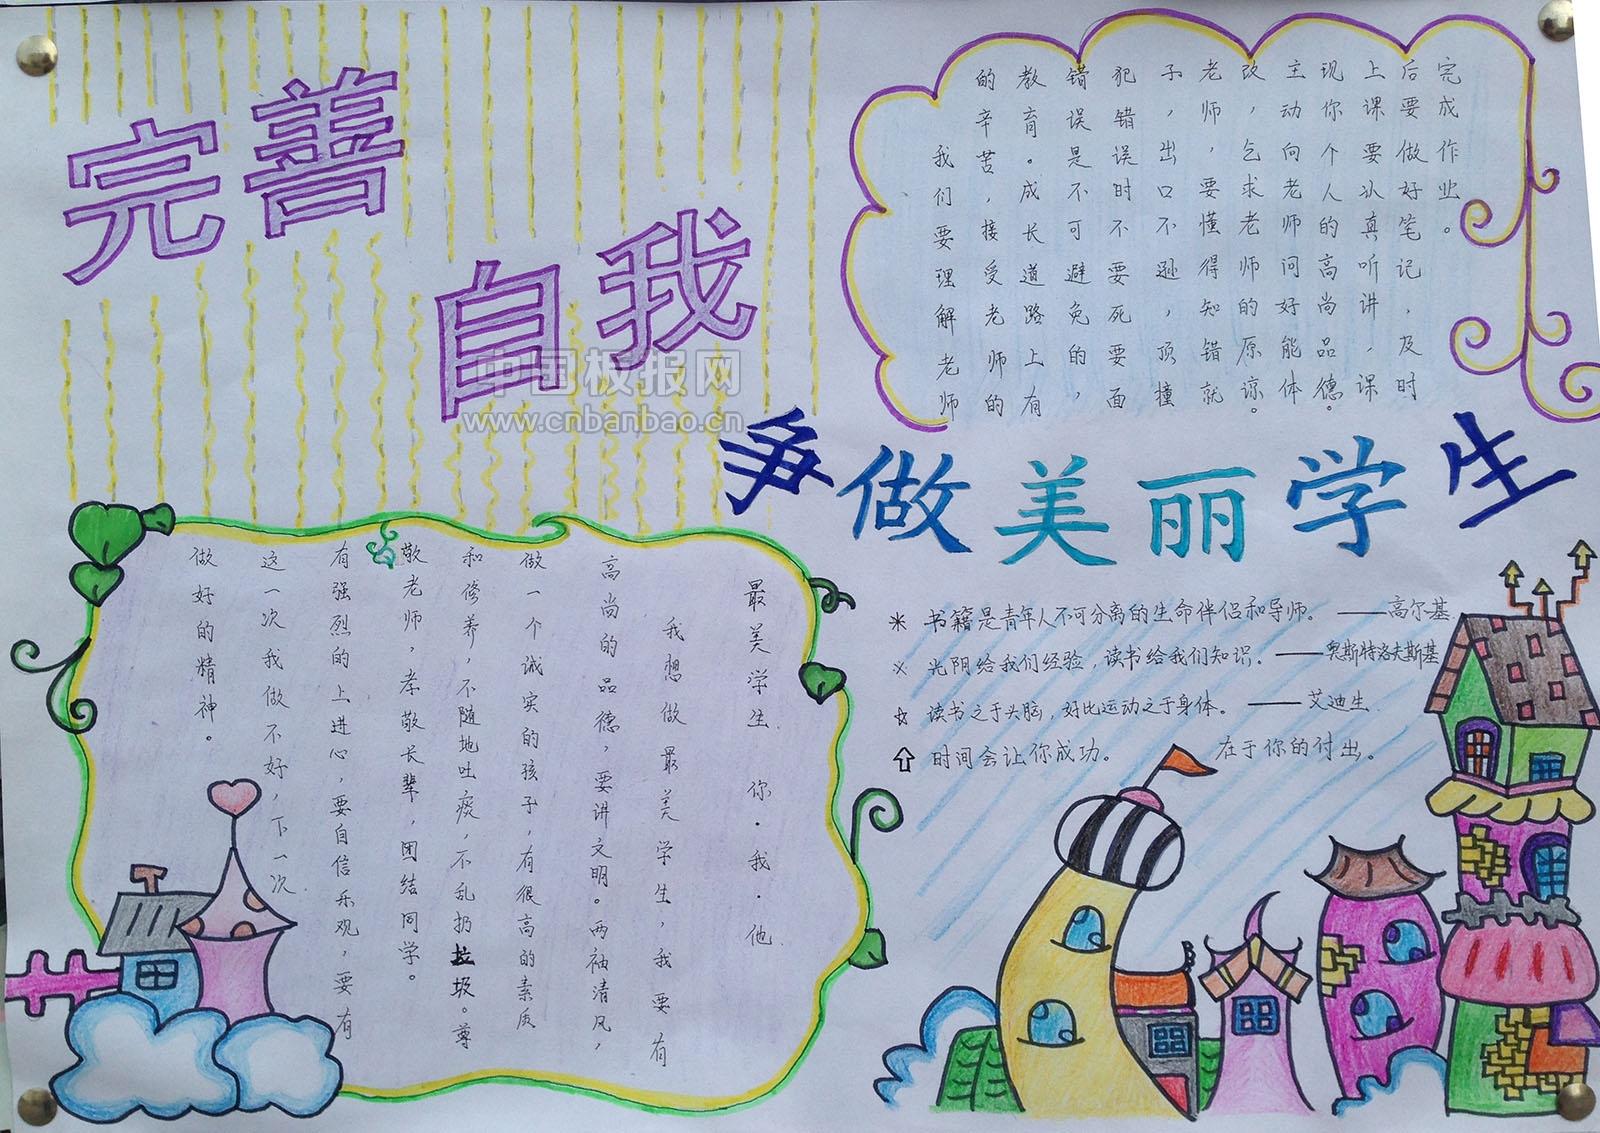 完善
自我
中国板报网
www.cnbanbao.cn
我们要理解老师
的辛苦，接受老师的
教育。成长道路上有
错误是不可避免的，
犯错误时不要死要面
子，出口不逊，顶撞
老师，要懂得知错就
改，乞求老师的原谅。
主动向老师问好能体
现你个人的高尚品德。
上课要认真听讲，课
后要做好笔记，及时
完成作业。
争做美丽学生
最美学生 你·我·他
我想做最美学生，我要有
高尚的品德，要讲文明。两袖清风，
做一个诚实的孩子，有很高的素质
和修养，不随地吐痰，不乱扔垃圾。尊
敬老师，孝敬长辈，团结同学。
有强烈的上进心，要自信乐观，要有
这一次我做不好，下一次
做好的精神。
书籍是青年人不可分离的生命伴侣和导师。——高尔基
光阴给我们经验，读书给我们知识。——奥斯特洛夫斯基
读书之于头脑，好比运动之于身体。——艾迪生
时间会让你成功。 在于你的付出。